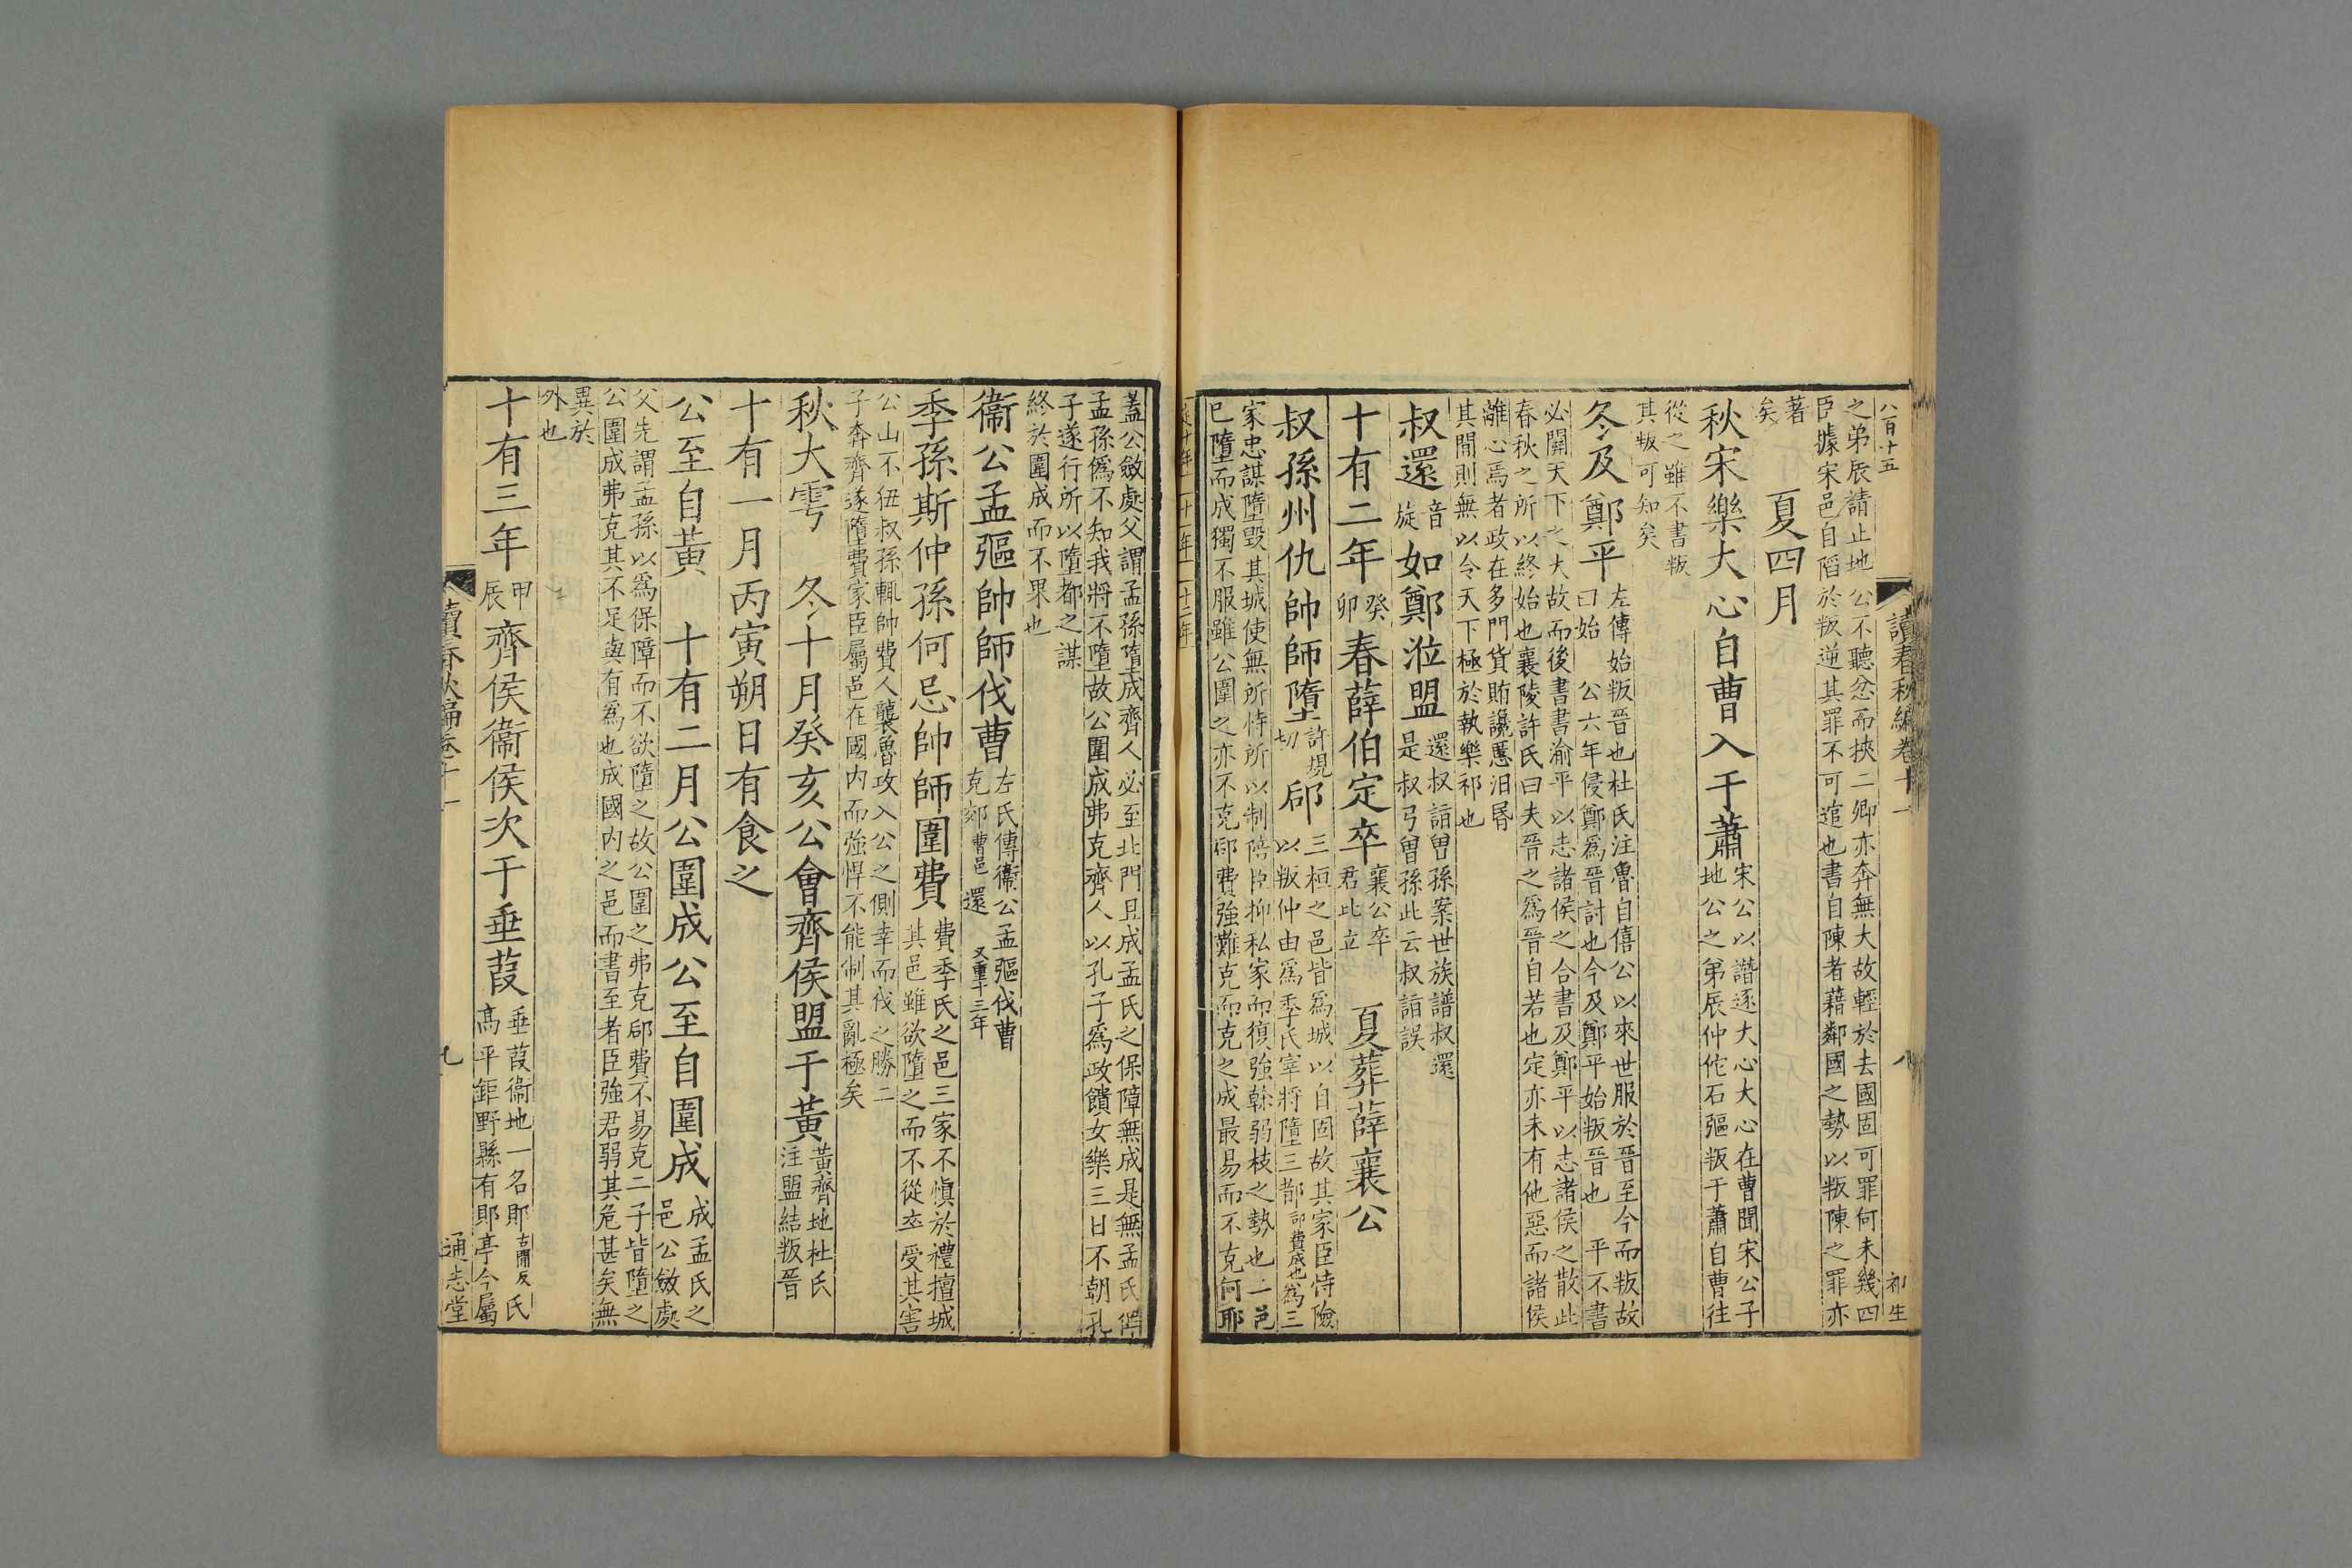 八百十五
讀春秋編卷十一
八
初生
之弟辰請止地公不聽忿而挾二卿亦奔無大故輕於去國固可罪何未幾四
臣據宋邑自䧟於叛逆其罪不可逭也書自陳者藉鄰國之勢以叛陳之罪亦
著
矣
夏四月
秋宋樂大心自曹入于蕭
宋公以譖逐大心大心在曹聞宋公子
地公之弟辰仲佗石彄叛于蕭自曹往
從之雖不書叛
其叛可知矣
冬及鄭平
左傳始叛晉也杜氏注魯自僖公以來世服於晉至今而叛故
曰始 公六年侵鄭為晉討也今及鄭平始叛晉也 平不書
必關天下之大故而後書書渝平以志諸侯之合書及鄭平以志諸侯之散此
春秋之所以終始也襄陵許氏曰夫晉之為晉自若也定亦未有他惡而諸侯
離心焉者政在多門貨賄讒慝汨昬
其間則無以令天下極於執樂祁也
叔還
音
旋
如鄭涖盟
還叔詣曾孫案世族譜叔還
是叔弓曾孫此云叔詣誤
十有二年
癸
卯
春薛伯定卒
襄公卒
君比立
夏葬薛襄公
叔孫州仇帥師墮
許規
切
郈
三桓之邑皆為城以自固故其家臣恃險
以叛仲由為季氏宰將墮三都郈費成也為三
家忠謀墮毀其城使無所恃所以制陪臣抑私家而復強榦弱枝之勢也二邑
已墮而成獨不服雖公圍之亦不克郈費強難克而克之成最易而不克何耶
蓋公斂處父謂孟孫墮成齊人必至北門且成孟氏之保障無成是無孟氏僞
孟孫僞不知我將不墮故公圍成弗克齊人以孔子為政饋女樂三日不朝孔
子遂行所以墮都之謀
終於圍成而不果也
衞公孟彄帥師伐曹
左氏傳衞公孟彄伐曹
克郊曹邑還 又重十三年
季孫斯仲孫何忌帥師圍費
費季氏之邑三家不慎於禮擅城
其邑雖欲墮之而不從卒受其害
公山不狃叔孫輒帥費人襲魯攻入公之側幸而伐之勝二
子奔齊遂墮費家臣屬邑在國內而強悍不能制其亂極矣
秋大雩 冬十月癸亥公會齊侯盟于黃
黃齊地杜氏
注盟結叛晉
十有一月丙寅朔日有食之
公至自黃 十有二月公圍成公至自圍成
成孟氏之
邑公斂處
父先謂孟孫以為保障而不欲墮之故公圍之弗克郈費不易克二子皆墮之
公圍成弗克其不足與有為也成國內之邑而書至者臣強君弱其危甚矣無
異於
外也
十有三年
甲
辰
齊侯衞侯次于垂葭
垂葭衞地一名郹古閴反氏
高平鉅野縣有郹亭今屬
讀春秋編卷十一
九
通志堂